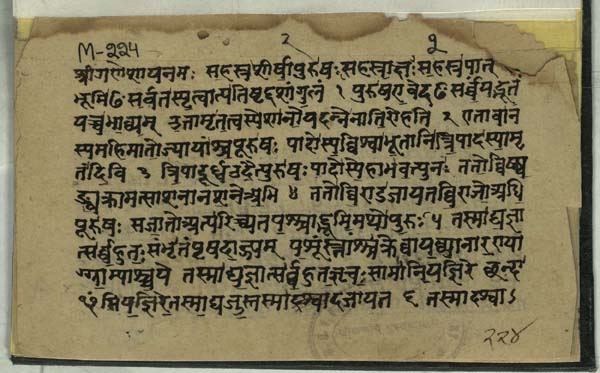 M-२२५ २ १
श्रीगणेशायनमः सहस्रशीर्षापुरुषः सहस्राक्षः सहस्रपात्
भूमिᳪ सर्वतस्पृत्वात्यतिष्ठद्दशांगुलं १ पुरुषएवेदᳪ सर्वंयद्भूतं
यच्चभाव्यम् उतामृतत्वस्येशानोयदन्नेनातिरोहति २ एतावान
स्यमहिमातोज्यायांश्चपूरुषः पादोस्यविश्वाभूतानित्रिपादस्यामृ
तंदिवि ३ त्रिपादूर्ध्वउदैत्पुरुषः पादोस्येहाभवत्पुनः ततोविष्व
ङ्व्यक्रामत्साशनानशनेअभि ४ ततोविराडजायतविराजोअधि
पूरुषः सजातोअत्यरिच्यतपश्चाद्भूमिमथोपुरः ५ तस्माद्यज्ञा
त्सर्वहुतः संभृतंपृषदाज्यम् पशूंस्तांश्चक्रेवायव्यानारण्या
ग्राम्याश्चये तस्माद्यज्ञात्सर्वहुतऋचः सामानिजज्ञिरे छन्दा
ᳪसिजज्ञिरेतस्माद्यजुस्तस्मादजायत ६ तस्मादश्वा
२२४